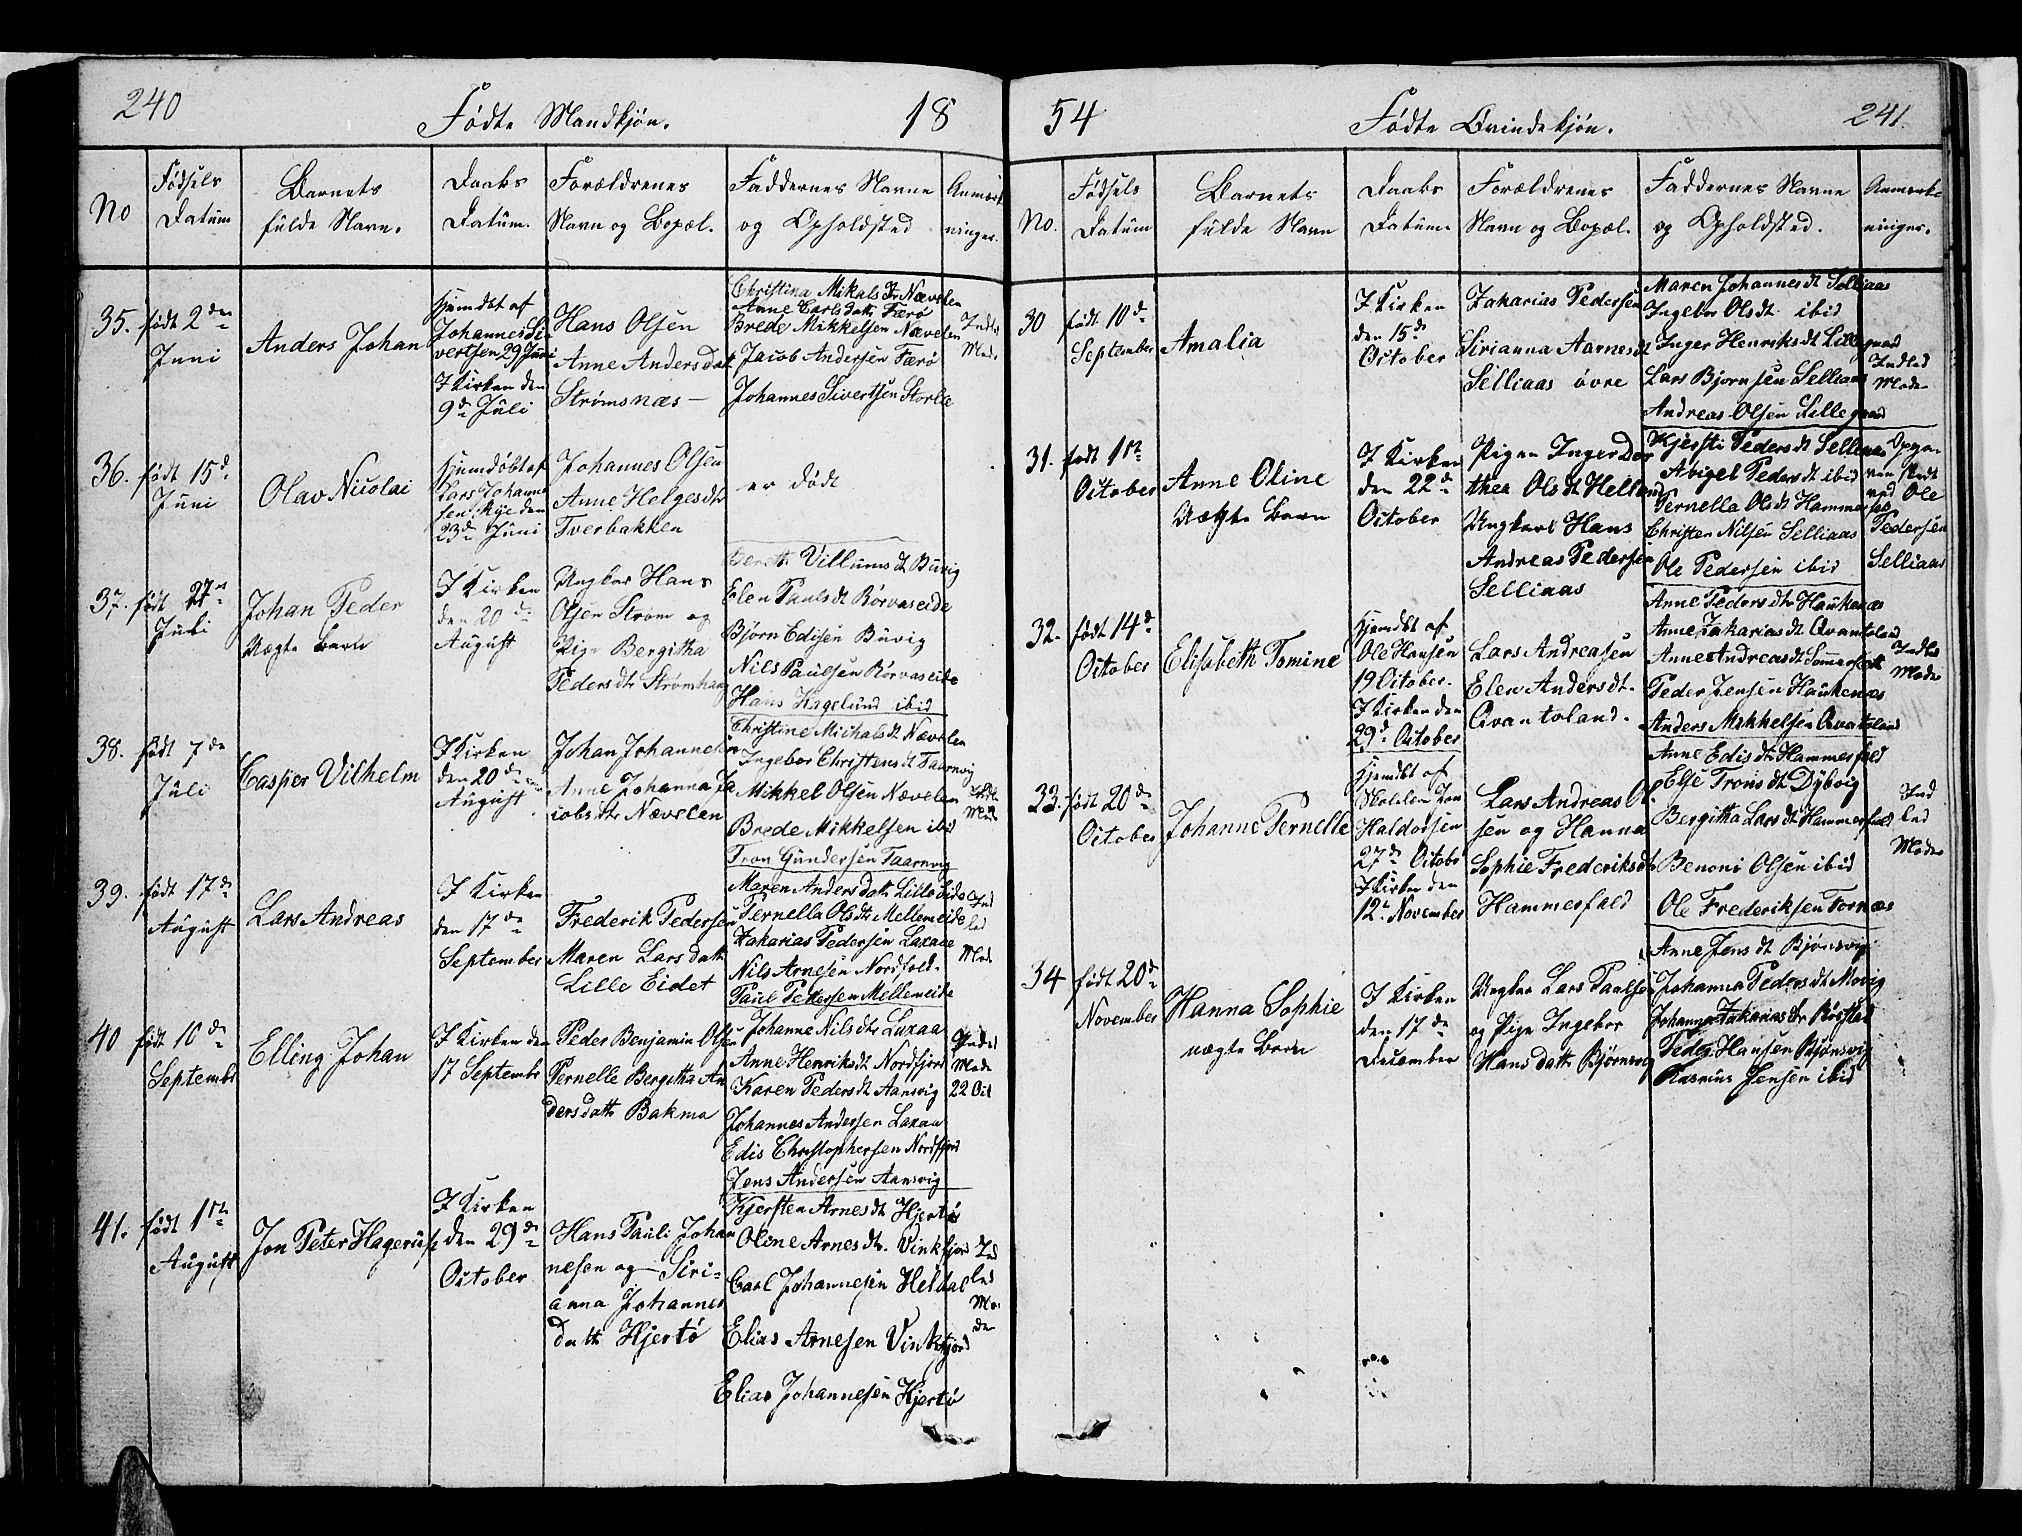 240 Fødte Mandkjøn. 18
No
Fødsels
Datum
Barnets
fulde Navn.
Daabs
Datum.
Forældrenes
Navn og Bopæl.
Faddernes Navne
og Opholdsted
Anmærk
ninger.
35. født 2den
Juni
Anders Johan
hjemdbt af
Johannes Si
vertsen 29 Juni
I Kirken den
9de Juli
Hans Olsen
Anne Andersdatt
Strømsnæs
Christina Mikalsdtr Nævelen
Anne Carlsdatt Færø
Brede Mikkelsen Nævelen
Jacob Andersen Færø
Johannes Sivertsen Storlle
Indled
Mode
36. født 15de
Juni
Olav Nicolai
hjemdøbt af
Lars Johanne
sen Kye den
23de Juni
Johannes Olsen
Anne Helgesdtr
Tverbakken
er død
37. født 27n
Juli
Johan Peder
Uægte Barn
I Kirken
den 20de
August
Ungkar Hans
Olsen Strøm og
Pige Bergitha
Pedersdtr Strømhaug
Bereth Villumsdt Buvig
Elen Paulsdt Rørvaseide
Bjørn Edisen Buvig
Nils Paulsen Rørvaseide
Hans Hagelund ibid
38. født 7de
Juli
Casper Vilhelm
I Kirken
den 20de
August
Johan Johannesen
Anne Johanna Ja
cobsdtr Nævelen
Christine Michalsdt Nævelen
Ingebor Christensdt Taarnvig
Mikkel Olsen Nævelen
Brede Mikkelsen ibid
Tron Gundersen Taarnvig
39. født 17de
August
Lars Andreas
I Kirken
den 17de
September
Frederik Pedersen
Maren Larsdatt
Lille Eidet
Maren Andersdatt Lilleeide
Pernella Olsdt Mellemeide
Zakarias Pedersen Laxaae
Nils Arnesen Nordfold
Paul Pettersen Mellemeide
Ind
led
Mode
40 født 10de
Septembr
Elling Johan
I Kirken den
17 Septembr
Peder Benjamin Olsen
Pernelle Bergitha An
dersdatt Bakmo
Johanne Nilsdtr Laxaa
Anne Henriksdt Nordfjord
Karen Pedersdt Aansvig
Johannes Andersen Laxaa
Edis Christophersen Nordfjord
Jens Andersen Aansvig
Indled
Mode
22 Oct
41. født 1ste
August
Jon Peter Hagerup
I Kirken
den 29de
October
Hans Pauli Johan
nesen og Siri-
anna Johannes
datt Hjertø
Kjersten Arnesdt Hjertø
Oline Arnesdtr. Vinkfjord
Carl Johannesen Heldal
Elias Arnesen Vinkfjord
Elias Johannesen Hjertø
Ind
led
Mo
de
54 Fødte Qvindekjøn. 241.
No.
Fødsels
Datum
Barnets
fulde Navn
Daabs
Datum.
Forældrenes
Navn og Bopæl.
Faddernes Navne
og Opholdsted.
Anmærk-
ninger.
30 født 10de
September
Amalia
I Kirken
den 15de
October
Zakarias Pedersen
Sirianna Aarnesdt
Selliaas øvre
Maren Johannesdt Selliaas
Ingebr Olsdt ibid
Inger Henriksdt Lillegaard
Lars Bjørnsen Selliaas
Andreas Olsen Lillegaard
Indled
Mode
31. født 1ste
October
Anne Oline
Uægte Barn
I Kirken
den 22de
October
Pigen Inger Dor
thea Olsdt Helland
Ungkarl Hans
Andreas Pedersen
Selliaas
Kjersti Pedersdt Selliaas
Abigel Pedersdt ibid
Pernella Olsdt Hammernes
Christen Nilsen Selliaas
Ole Pedersen ibid
ved Ole
Pedersen
Selliaas
32. født 14de
October
Elisabeth Tomine
hjemdbt af
Ole Hansen
19 October.
I Kirken den
29de October
Lars Andreasen
Elen Andersdt.
Qvantoland.
Anne Pedersdtr Haukenæs
Anne Zakariasdt Qvantoland
Anne Andreasdt Sommerset
Peder Jensen Haukenæs
Anders Mikkelsen Qvantoland
Indled
Mode
33. født 20de
October
Johanne Pernelle
hjemdbt af
Skolelr Jon
Haldorsen
27de Octobr
I Kirken den
12te November
Lars Andreas Ol
sen og Hanna
Sophie Frederiksdt
Hammerfald
Anne Edisdtr Hammerfald
Else Tronsdt Dybvig
Bergitha Larsdt Hammerfald
Benoni Olsen ibid
Ole Frederiksen Fornæs
Ind
led
Mode
34 født 20de
November
Hanna Sophie
uægte Barn
I Kirken
den 17de
December
Ungkar Lars Paulsen
og Pige Ingebor
Hansdatt Bjørnsvig
Anne Jensdt Bjørnsvig
Johanna Pedersdt Movig
Johanna Zakariasdtr Røsstad
Peder Hansen Bjørnsvig
Rasmus Jensen ibid